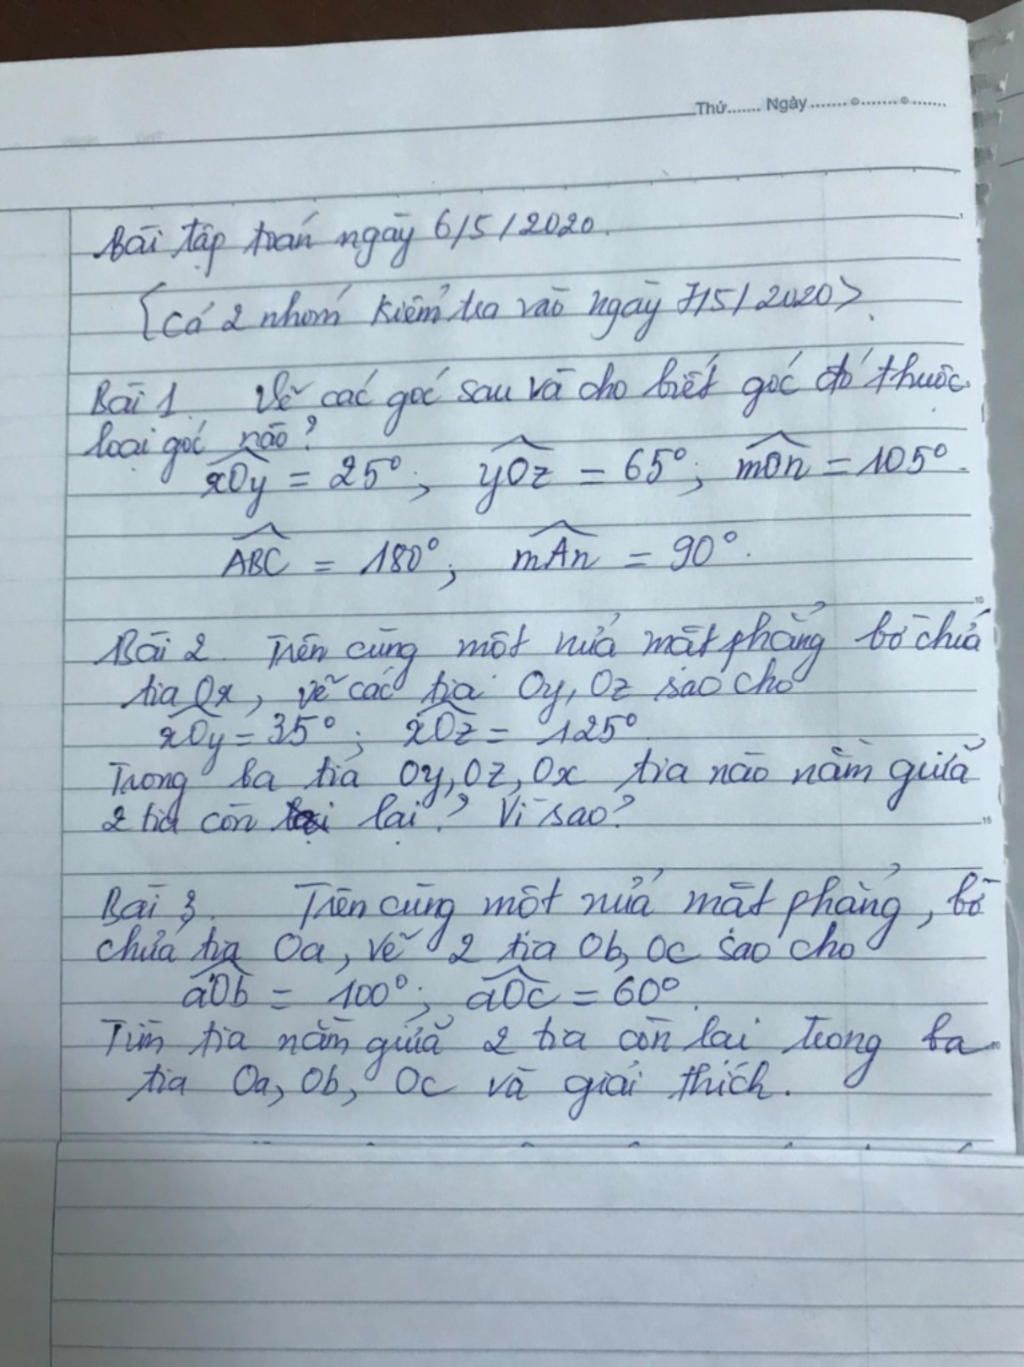 Thứ....... Ngày.......o.......o.......
Bài tập toán ngày 6/5/2020.
(Cả 2 nhóm kiểm tra vào ngày 7/5/2020).
Bài 1. Vẽ các góc sau và cho biết góc đó thuộc
loại góc nào?
xOy = 25°; yOz = 65°; mOn = 105°.
ABC = 180°; mAn = 90°.
Bài 2. Trên cùng một nửa mặt phẳng bờ chứa
tia Ox, vẽ các tia Oy, Oz sao cho
xOy = 35°; xOz = 125°
Trong ba tia Oy, Oz, Ox tia nào nằm giữa
2 tia còn lại? Vì sao?
Bài 3. Trên cùng một nửa mặt phẳng, bờ
chứa tia Oa, vẽ 2 tia Ob, Oc sao cho
aOb = 100°; aOc = 60°.
Tìm tia nằm giữa 2 tia còn lại trong ba
tia Oa, Ob, Oc và giải thích.